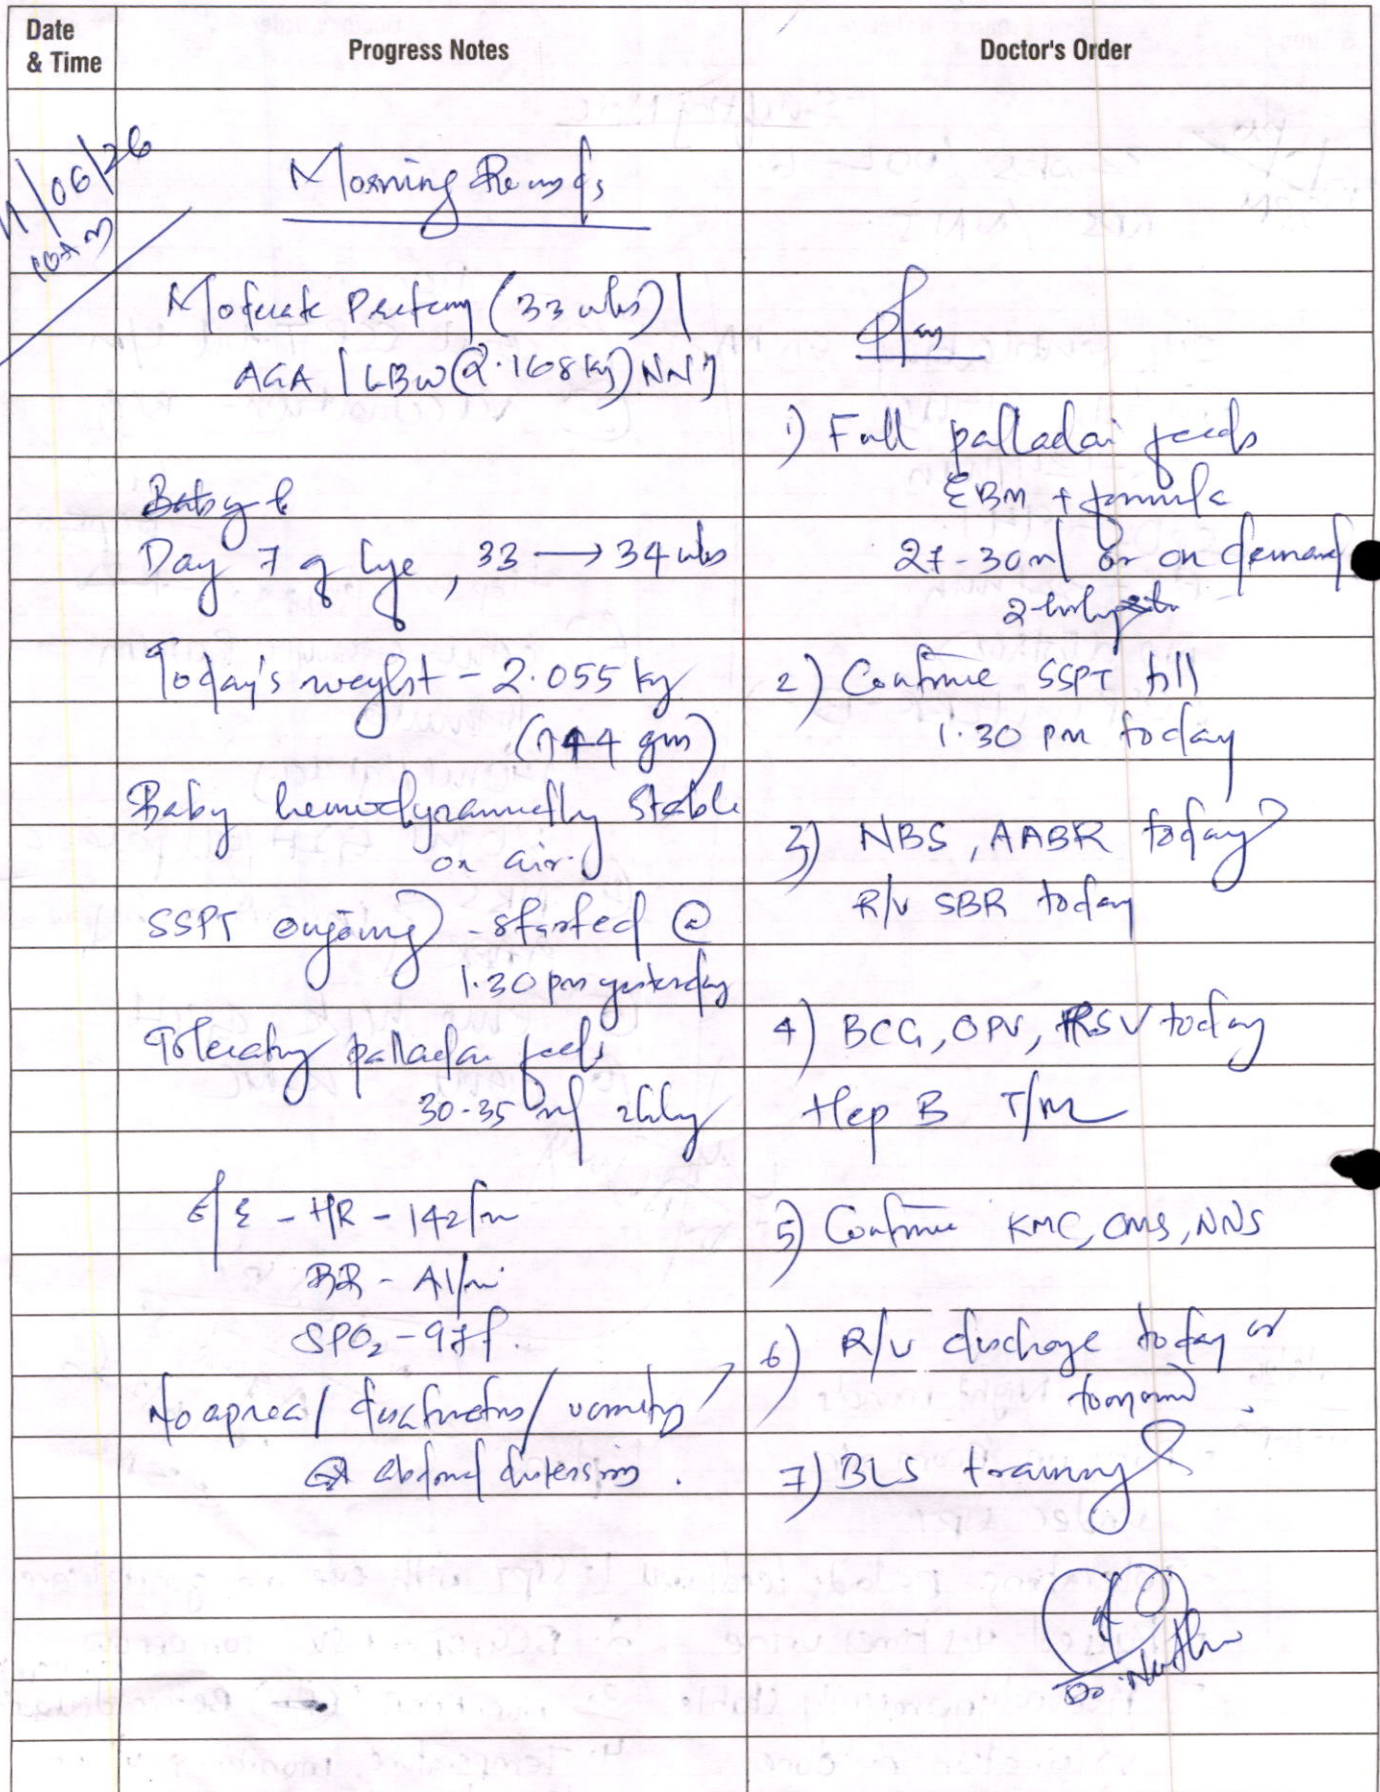 Date
& Time
Progress Notes
Doctor's Order
11/06/26
10AM
Morning Rounds
Moderate Preterm (33 wks) |
AGA | LBW (2.168 kg) NNJ
Day 7 of life, 33 → 34 wks
Today's weight - 2.055 kg
(↑44 gm)
Baby hemodynamically stable
on air.
SSPT ongoing - started @
1.30 pm yesterday
Tolerating palladai feeds
30-35 ml 2hrly
E/E - HR - 142/m
RR - 41/m
SPO₂ - 97%.
No apnea / desaturations / vomiting /
abdominal distension.
Plan
1) Full palladai feeds
EBM + formula
27-30 ml or on demand
2 hrly
2) Continue SSPT till
1.30 pm today
3) NBS, AABR today
R/v SBR today
4) BCG, OPV, RSV today
Hep B T/m
5) Continue KMC, OMS, NNS
6) R/v discharge today or
tomorrow.
7) BLS training